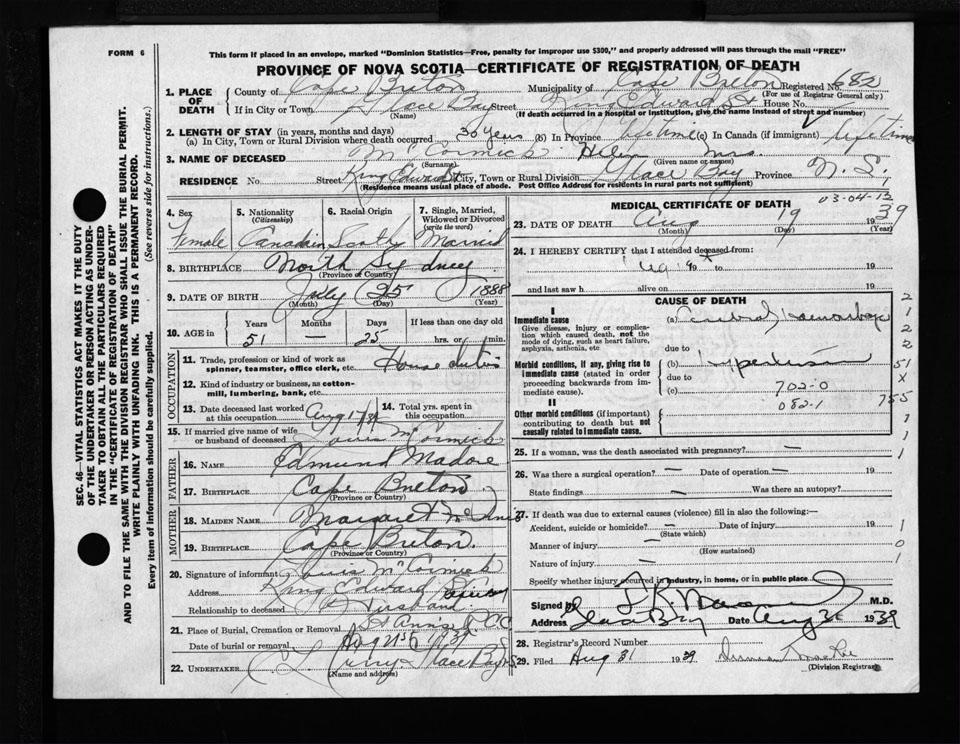 FORM 6
This form if placed in an envelope, marked "Dominion Statistics—Free, penalty for improper use $300," and properly addressed will pass through the mail "FREE"
PROVINCE OF NOVA SCOTIA—CERTIFICATE OF REGISTRATION OF DEATH
SEC. 46—VITAL STATISTICS ACT MAKES IT THE DUTY
OF THE UNDERTAKER OR PERSON ACTING AS UNDER-
TAKER TO OBTAIN ALL THE PARTICULARS REQUIRED
IN THE "CERTIFICATE OF REGISTRATION OF DEATH"
AND TO FILE THE SAME WITH THE DIVISION REGISTRAR WHO SHALL ISSUE THE BURIAL PERMIT.
WRITE PLAINLY WITH UNFADING INK. THIS IS A PERMANENT RECORD.
Every item of information should be carefully supplied. (See reverse side for instructions.)
1. PLACE OF DEATH
County of Cape Breton Municipality of Cape Breton Registered No. 682
(For use of Registrar General only)
If in City or Town Glace Bay Street King Edward St House No.
(Name) (If death occurred in a Hospital or Institution, give the name instead of street and number)
2. LENGTH OF STAY (in years, months and days)
(a) In City, Town or Rural Division where death occurred 30 years (b) In Province lifetime (c) In Canada (if immigrant) lifetime
3. NAME OF DECEASED McCormick Helen Mrs.
(Surname) (Given name or names)
RESIDENCE No. Street King Edward City, Town or Rural Division Glace Bay Province N.S.
(Residence means usual place of abode. Post Office Address for residents in rural parts not sufficient)
4. Sex Female
5. Nationality (Citizenship) Canadian
6. Racial Origin Scotch
7. Single, Married, Widowed or Divorced (write the word) Married
8. BIRTHPLACE North Sydney
(Province or Country)
9. DATE OF BIRTH July 25 1888
(Month) (Day) (Year)
10. AGE in Years Months Days If less than one day old
51 — 25 hrs. or min.
OCCUPATION
11. Trade, profession or kind of work as spinner, teamster, office clerk, etc. House duties
12. Kind of industry or business, as cotton-mill, lumbering, bank, etc.
13. Date deceased last worked at this occupation Aug 17/39
14. Total yrs. spent in this occupation.
15. If married give name of wife or husband of deceased Louis McCormick
FATHER
16. NAME Edmund Madore
17. BIRTHPLACE Cape Breton
(Province or Country)
MOTHER
18. MAIDEN NAME Margaret
19. BIRTHPLACE Cape Breton.
(Province or Country)
20. Signature of informant Louis McCormick
Address King Edward
Relationship to deceased Husband
21. Place of Burial, Cremation or Removal St Anns
Date of burial or removal Aug 21st 1939
22. UNDERTAKER Curry Glace Bay N.S.
(Name and address)
MEDICAL CERTIFICATE OF DEATH
03-04-12
23. DATE OF DEATH Aug 19 1939
(Month) (Day) (Year)
24. I HEREBY CERTIFY that I attended deceased from:
Aug 19 to 19
and last saw h alive on 19
CAUSE OF DEATH
I
Immediate cause
Give disease, injury or complication which caused death, not the mode of dying, such as heart failure, asphyxia, asthenia, etc
(a) Cerebral Haemorrhage
due to
Morbid conditions, if any, giving rise to immediate cause (stated in order proceeding backwards from immediate cause).
(b) hypertension
due to
(c) 702-0
082-1
II
Other morbid conditions (if important) contributing to death but not causally related to immediate cause.
2
1
2
2
51
X
755
1
1
1
25. If a woman, was the death associated with pregnancy? —
26. Was there a surgical operation? — Date of operation —
State findings — Was there an autopsy? —
27. If death was due to external causes (violence) fill in also the following:—
Accident, suicide or homicide? — Date of injury 19
(State which)
Manner of injury —
(How sustained)
Nature of injury —
1
0
1
Specify whether injury occurred in industry, in home, or in public place
Signed by M.D.
Address Glace Bay Date Aug 1939
28. Registrar's Record Number
29. Filed Aug 31 1939
(Division Registrar)